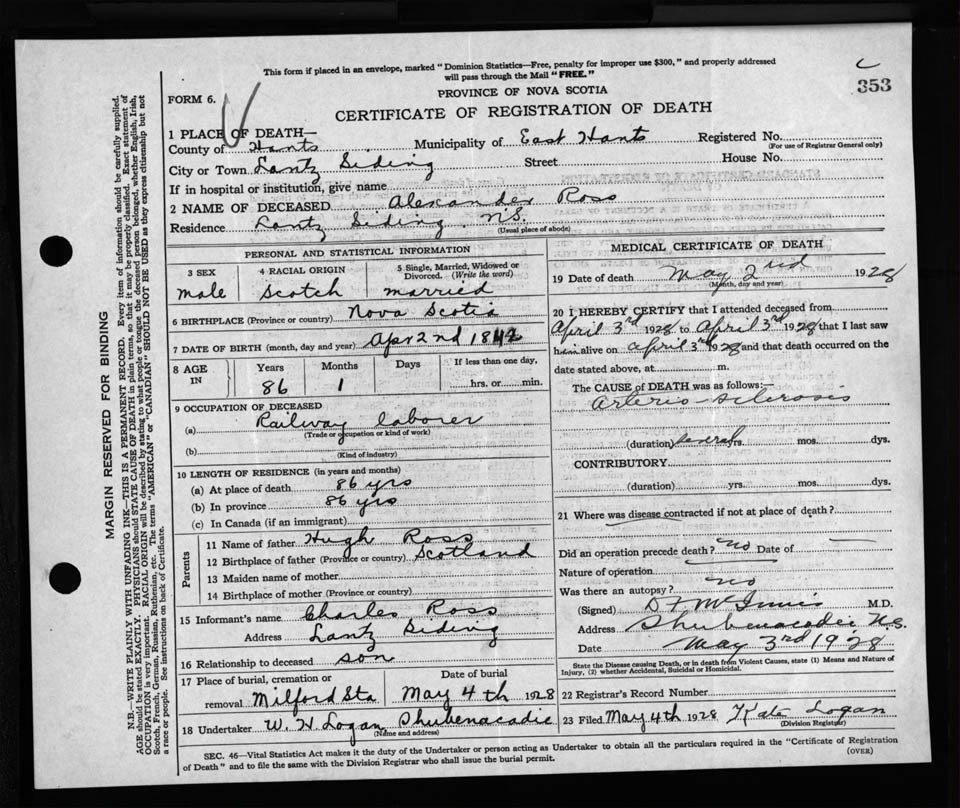 This form if placed in an envelope, marked "Dominion Statistics—Free, penalty for improper use $300," and properly addressed
will pass through the Mail "FREE."
c
353
PROVINCE OF NOVA SCOTIA
FORM 6.
CERTIFICATE OF REGISTRATION OF DEATH
1 PLACE OF DEATH—
County of Hants Municipality of East Hants Registered No.
(For use of Registrar General only)
City or Town Lantz Siding Street House No.
If in hospital or institution, give name
2 NAME OF DECEASED Alexander Ross
Residence Lantz Siding N.S.
(Usual place of abode)
PERSONAL AND STATISTICAL INFORMATION
3 SEX 4 RACIAL ORIGIN 5 Single, Married, Widowed or Divorced. (Write the word)
male Scotch married
6 BIRTHPLACE (Province or country) Nova Scotia
7 DATE OF BIRTH (month, day and year) Apr 2nd 1842
8 AGE IN Years Months Days If less than one day,
86 1 hrs. or min.
9 OCCUPATION OF DECEASED
(a) Railway laborer
(Trade or occupation or kind of work)
(b)
(Kind of industry)
10 LENGTH OF RESIDENCE (in years and months)
(a) At place of death 86 yrs
(b) In province 86 yrs
(c) In Canada (if an immigrant)
Parents
11 Name of father Hugh Ross
12 Birthplace of father (Province or country) Scotland
13 Maiden name of mother
14 Birthplace of mother (Province or country)
15 Informant's name Charles Ross
Address Lantz Siding
16 Relationship to deceased son
17 Place of burial, cremation or removal Date of burial
Milford Sta May 4th 1928
18 Undertaker W. H. Logan Shubenacadie
(Name and address)
MEDICAL CERTIFICATE OF DEATH
19 Date of death May 2nd 1928
(Month, day and year)
20 I HEREBY CERTIFY that I attended deceased from
April 3rd 1928 to April 3rd 1928 that I last saw
him alive on April 3rd 1928 and that death occurred on the
date stated above, at m.
The CAUSE of DEATH was as follows:—
Arterio-sclerosis
(duration) several yrs. mos. dys.
CONTRIBUTORY
(duration) yrs. mos. dys.
21 Where was disease contracted if not at place of death?
Did an operation precede death? no Date of —
Nature of operation
Was there an autopsy? no
(Signed) D F McInnis M.D.
Address Shubenacadie N.S.
Date May 3rd 1928
State the Disease causing Death, or in death from Violent Causes, state (1) Means and Nature of
Injury, (2) whether Accidental, Suicidal or Homicidal.
22 Registrar's Record Number
23 Filed May 4th 1928 Kate Logan
(Division Registrar)
SEC. 46—Vital Statistics Act makes it the duty of the Undertaker or person acting as Undertaker to obtain all the particulars required in the "Certificate of Registration
of Death" and to file the same with the Division Registrar who shall issue the burial permit. (OVER)
MARGIN RESERVED FOR BINDING
N.B.—WRITE PLAINLY WITH UNFADING INK—THIS IS A PERMANENT RECORD. Every item of information should be carefully supplied.
AGE should be stated EXACTLY. PHYSICIANS should STATE CAUSE OF DEATH in plain terms, so that it may be properly classified. Exact statement of
OCCUPATION is very important. RACIAL ORIGIN will be described by stating to what people or tongue the deceased person belonged, whether English, Irish,
Scotch, French, German, Russian, Ruthenian, etc. The terms "AMERICAN" or "CANADIAN" SHOULD NOT BE USED as they express citizenship but not
a race or people. See instructions on back of Certificate.